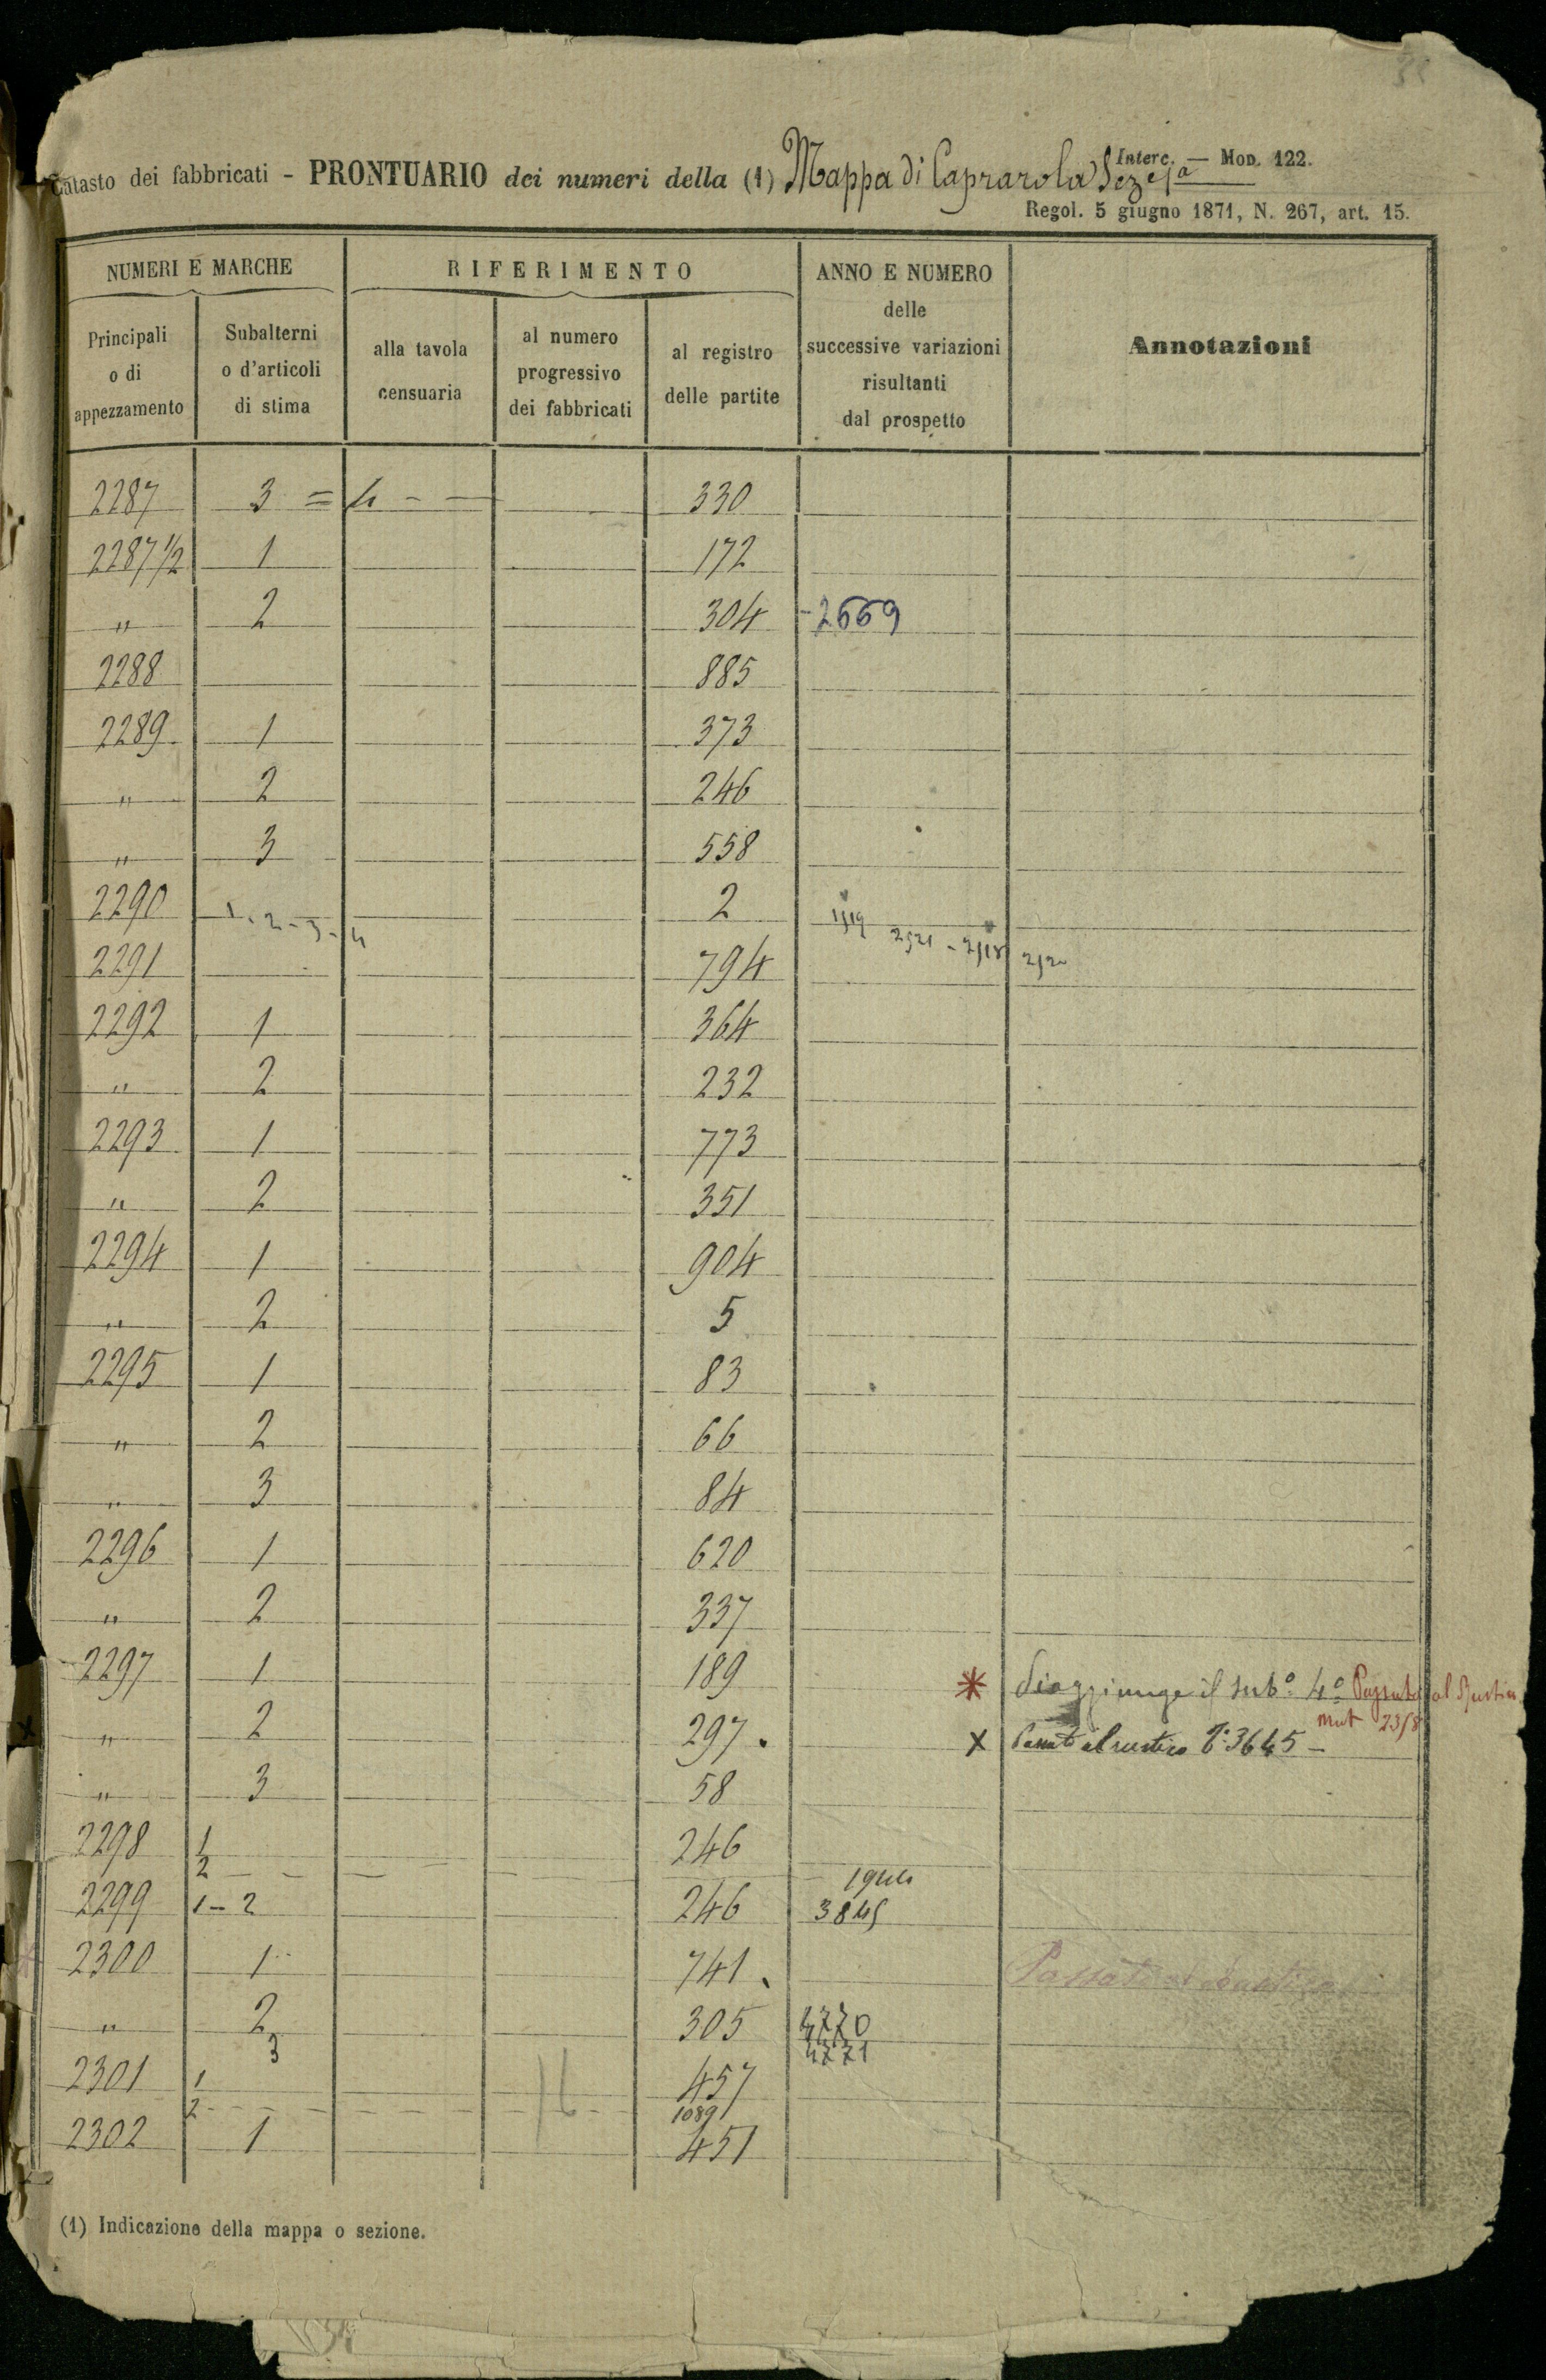 Catasto dei fabbricati - PRONTUARIO dei numeri della (1) Mappa di Caprarola Sez. 1a
Interc. — Mod. 122.
Regol. 5 giugno 1871, N. 267, art. 15.
NUMERI E MARCHE
RIFERIMENTO
ANNO E NUMERO delle successive variazioni risultanti dal prospetto
Annotazioni
Principali o di appezzamento
Subalterni o d'articoli di stima
alla tavola censuaria
al numero progressivo dei fabbricati
al registro delle partite
2287 3 = 4 - — 330
2287 1/2 1 172
" 2 304 - 2669
2288 885
2289 1 373
" 2 246
" 3 558
2290 1 - 2 - 3 - 4 2
2291 794
2292 1 364
" 2 232
2293 1 773
" 2 351
2294 1 904
" 2 5
2295 1 83
" 2 66
" 3 84
2296 1 620
" 2 337
2297 1 189 * Si aggiunge il sub° 4° Passato al Rustico
X " 2 297 . X Passato al rustico 3645 —
" 3 58
2298 1 246
2
2299 1 - 2 246 3845
2300 1 741 . Passato al Rustico
" 2 305 4770
3 4771
2301 1 457
2 1089
2302 1 451
(1) Indicazione della mappa o sezione.